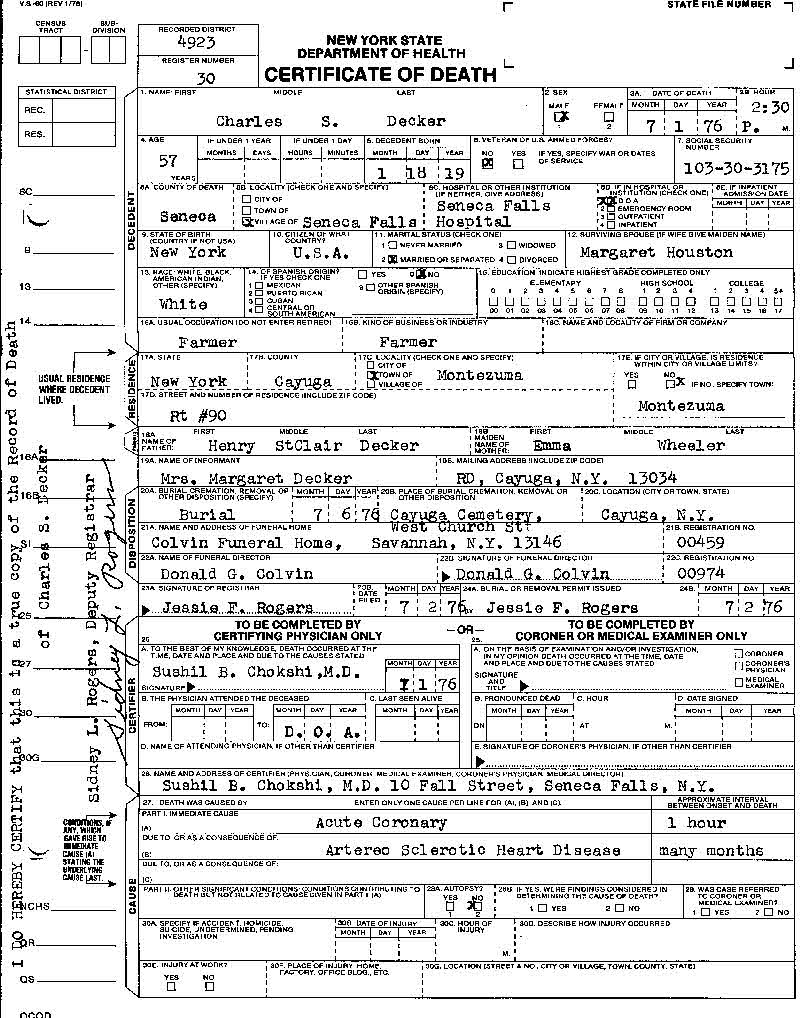 V.S.-60 (REV 1/76)
STATE FILE NUMBER
CENSUS TRACT
SUB-DIVISION
RECORDED DISTRICT
4923
REGISTER NUMBER
30
NEW YORK STATE
DEPARTMENT OF HEALTH
CERTIFICATE OF DEATH
STATISTICAL DISTRICT
REC.
RES.
1. NAME: FIRST MIDDLE LAST
Charles S. Decker
2 SEX
MALE FEMALE
X
1 2
3A. DATE OF DEATH
MONTH DAY YEAR
7 1 76
3B HOUR
2:30
P. M.
4. AGE
57
YEARS
IF UNDER 1 YEAR
MONTHS DAYS
IF UNDER 1 DAY
HOURS MINUTES
5. DECEDENT BORN
MONTH DAY YEAR
1 18 19
6. VETERAN OF U.S. ARMED FORCES?
NO YES IF YES, SPECIFY WAR OR DATES OF SERVICE
7. SOCIAL SECURITY NUMBER
103-30-3175
DECEDENT
8A COUNTY OF DEATH
Seneca
8B LOCALITY (CHECK ONE AND SPECIFY)
CITY OF
TOWN OF
VILLAGE OF Seneca Falls
8C. HOSPITAL OR OTHER INSTITUTION
(IF NEITHER, GIVE ADDRESS)
Seneca Falls
Hospital
8D. IF IN HOSPITAL OR INSTITUTION (CHECK ONE)
1 D O A
2 EMERGENCY ROOM
3 OUTPATIENT
4 INPATIENT
8E. IF INPATIENT ADMISSION DATE
MONTH DAY YEAR
9. STATE OF BIRTH
(COUNTRY IF NOT USA)
New York
10. CITIZEN OF WHAT COUNTRY?
U.S.A.
11. MARITAL STATUS (CHECK ONE)
1 NEVER MARRIED 3 WIDOWED
2 MARRIED OR SEPARATED 4 DIVORCED
12. SURVIVING SPOUSE (IF WIFE GIVE MAIDEN NAME)
Margaret Houston
13. RACE: WHITE, BLACK, AMERICAN INDIAN, OTHER (SPECIFY)
White
14. OF SPANISH ORIGIN?
IF YES CHECK ONE
YES NO
1 MEXICAN
2 PUERTO RICAN
3 CUBAN
4 CENTRAL OR SOUTH AMERICAN
OTHER SPANISH ORIGIN (SPECIFY)
15. EDUCATION INDICATE HIGHEST GRADE COMPLETED ONLY
ELEMENTARY HIGH SCHOOL COLLEGE
0 1 2 3 4 5 6 7 8 1 2 3 4 1 2 3 4 5+
00 01 02 03 04 05 06 07 08 09 10 11 12 13 14 15 16 17
16A. USUAL OCCUPATION (DO NOT ENTER RETIRED)
Farmer
16B. KIND OF BUSINESS OR INDUSTRY
Farmer
16C. NAME AND LOCALITY OF FIRM OR COMPANY
USUAL RESIDENCE WHERE DECEDENT LIVED.
RESIDENCE
17A. STATE
New York
17B. COUNTY
Cayuga
17C LOCALITY (CHECK ONE AND SPECIFY)
CITY OF
TOWN OF Montezuma
VILLAGE OF
17E. IF CITY OR VILLAGE, IS RESIDENCE WITHIN CITY OR VILLAGE LIMITS?
YES NO
X IF NO, SPECIFY TOWN:
Montezuma
17D. STREET AND NUMBER OF RESIDENCE (INCLUDE ZIP CODE)
Rt #90
18A NAME OF FATHER: FIRST MIDDLE LAST
Henry StClair Decker
18B MAIDEN NAME OF MOTHER: FIRST MIDDLE LAST
Emma Wheeler
19A. NAME OF INFORMANT
Mrs. Margaret Decker
19B. MAILING ADDRESS (INCLUDE ZIP CODE)
RD, Cayuga, N.Y. 13034
DISPOSITION
20A. BURIAL, CREMATION, REMOVAL OR OTHER DISPOSITION (SPECIFY)
Burial
MONTH DAY YEAR
7 6 76
20B. PLACE OF BURIAL, CREMATION, REMOVAL OR OTHER DISPOSITION
Cayuga Cemetery,
20C. LOCATION (CITY OR TOWN, STATE)
Cayuga, N.Y.
21A. NAME AND ADDRESS OF FUNERAL HOME
West Church St.
Colvin Funeral Home, Savannah, N.Y. 13146
21B. REGISTRATION NO.
00459
22A. NAME OF FUNERAL DIRECTOR
Donald G. Colvin
22B. SIGNATURE OF FUNERAL DIRECTOR
Donald G. Colvin
22C. REGISTRATION NO
00974
23A SIGNATURE OF REGISTRAR
Jessie F. Rogers
23B. DATE FILED
MONTH DAY YEAR
7 2 76
24A. BURIAL OR REMOVAL PERMIT ISSUED
BY Jessie F. Rogers
24B.
MONTH DAY YEAR
7 2 76
TO BE COMPLETED BY
CERTIFYING PHYSICIAN ONLY
—OR—
TO BE COMPLETED BY
CORONER OR MEDICAL EXAMINER ONLY
CERTIFIER
25
A. TO THE BEST OF MY KNOWLEDGE, DEATH OCCURRED AT THE TIME, DATE AND PLACE AND DUE TO THE CAUSES STATED
Sushil B. Chokshi, M.D.
SIGNATURE
MONTH DAY YEAR
1 76
25.
A. ON THE BASIS OF EXAMINATION AND/OR INVESTIGATION, IN MY OPINION DEATH OCCURRED AT THE TIME, DATE AND PLACE AND DUE TO THE CAUSES STATED
SIGNATURE AND TITLE
CORONER
CORONER'S PHYSICIAN
MEDICAL EXAMINER
B. THE PHYSICIAN ATTENDED THE DECEASED
MONTH DAY YEAR MONTH DAY YEAR
FROM: TO: D. O. A.
C. LAST SEEN ALIVE
MONTH DAY YEAR
B. PRONOUNCED DEAD
MONTH DAY YEAR
ON
C. HOUR
AT M.
D DATE SIGNED
MONTH DAY YEAR
D. NAME OF ATTENDING PHYSICIAN, IF OTHER THAN CERTIFIER
E. SIGNATURE OF CORONER'S PHYSICIAN, IF OTHER THAN CERTIFIER
26. NAME AND ADDRESS OF CERTIFIER (PHYSICIAN, CORONER, MEDICAL EXAMINER, CORONER'S PHYSICIAN, MEDICAL DIRECTOR)
Sushil B. Chokshi, M.D. 10 Fall Street, Seneca Falls, N.Y.
CAUSE
27. DEATH WAS CAUSED BY ENTER ONLY ONE CAUSE PER LINE FOR (A), (B) AND (C).
APPROXIMATE INTERVAL BETWEEN ONSET AND DEATH
PART I. IMMEDIATE CAUSE
(A) Acute Coronary
1 hour
DUE TO OR AS A CONSEQUENCE OF:
(B) Artereo Sclerotic Heart Disease
many months
DUE TO, OR AS A CONSEQUENCE OF:
(C)
CONDITIONS, IF ANY, WHICH GAVE RISE TO IMMEDIATE CAUSE (A) STATING THE UNDERLYING CAUSE LAST.
PART II. OTHER SIGNIFICANT CONDITIONS: CONDITIONS CONTRIBUTING TO DEATH BUT NOT RELATED TO CAUSE GIVEN IN PART I (A)
28A. AUTOPSY?
YES NO
X
1 2
28B IF YES, WERE FINDINGS CONSIDERED IN DETERMINING THE CAUSE OF DEATH?
1 YES 2 NO
29. WAS CASE REFERRED TO CORONER OR MEDICAL EXAMINER?
1 YES 2 NO
30A. SPECIFY IF ACCIDENT, HOMICIDE, SUICIDE, UNDETERMINED, PENDING INVESTIGATION
30B DATE OF INJURY
MONTH DAY YEAR
30C. HOUR OF INJURY
M.
30D. DESCRIBE HOW INJURY OCCURRED
30E. INJURY AT WORK?
YES NO
30F. PLACE OF INJURY: HOME, FACTORY, OFFICE BLDG., ETC.
30G. LOCATION (STREET & NO., CITY OR VILLAGE, TOWN, COUNTY, STATE)
I DO HEREBY CERTIFY that this is a true copy of the Record of Death
of Charles S. Decker
Sidney L. Rogers, Deputy Registrar
Sidney L. Rogers
8C
9
13
14
16A
16B
SI
25
27
30
30G
NCHS
OR
QS